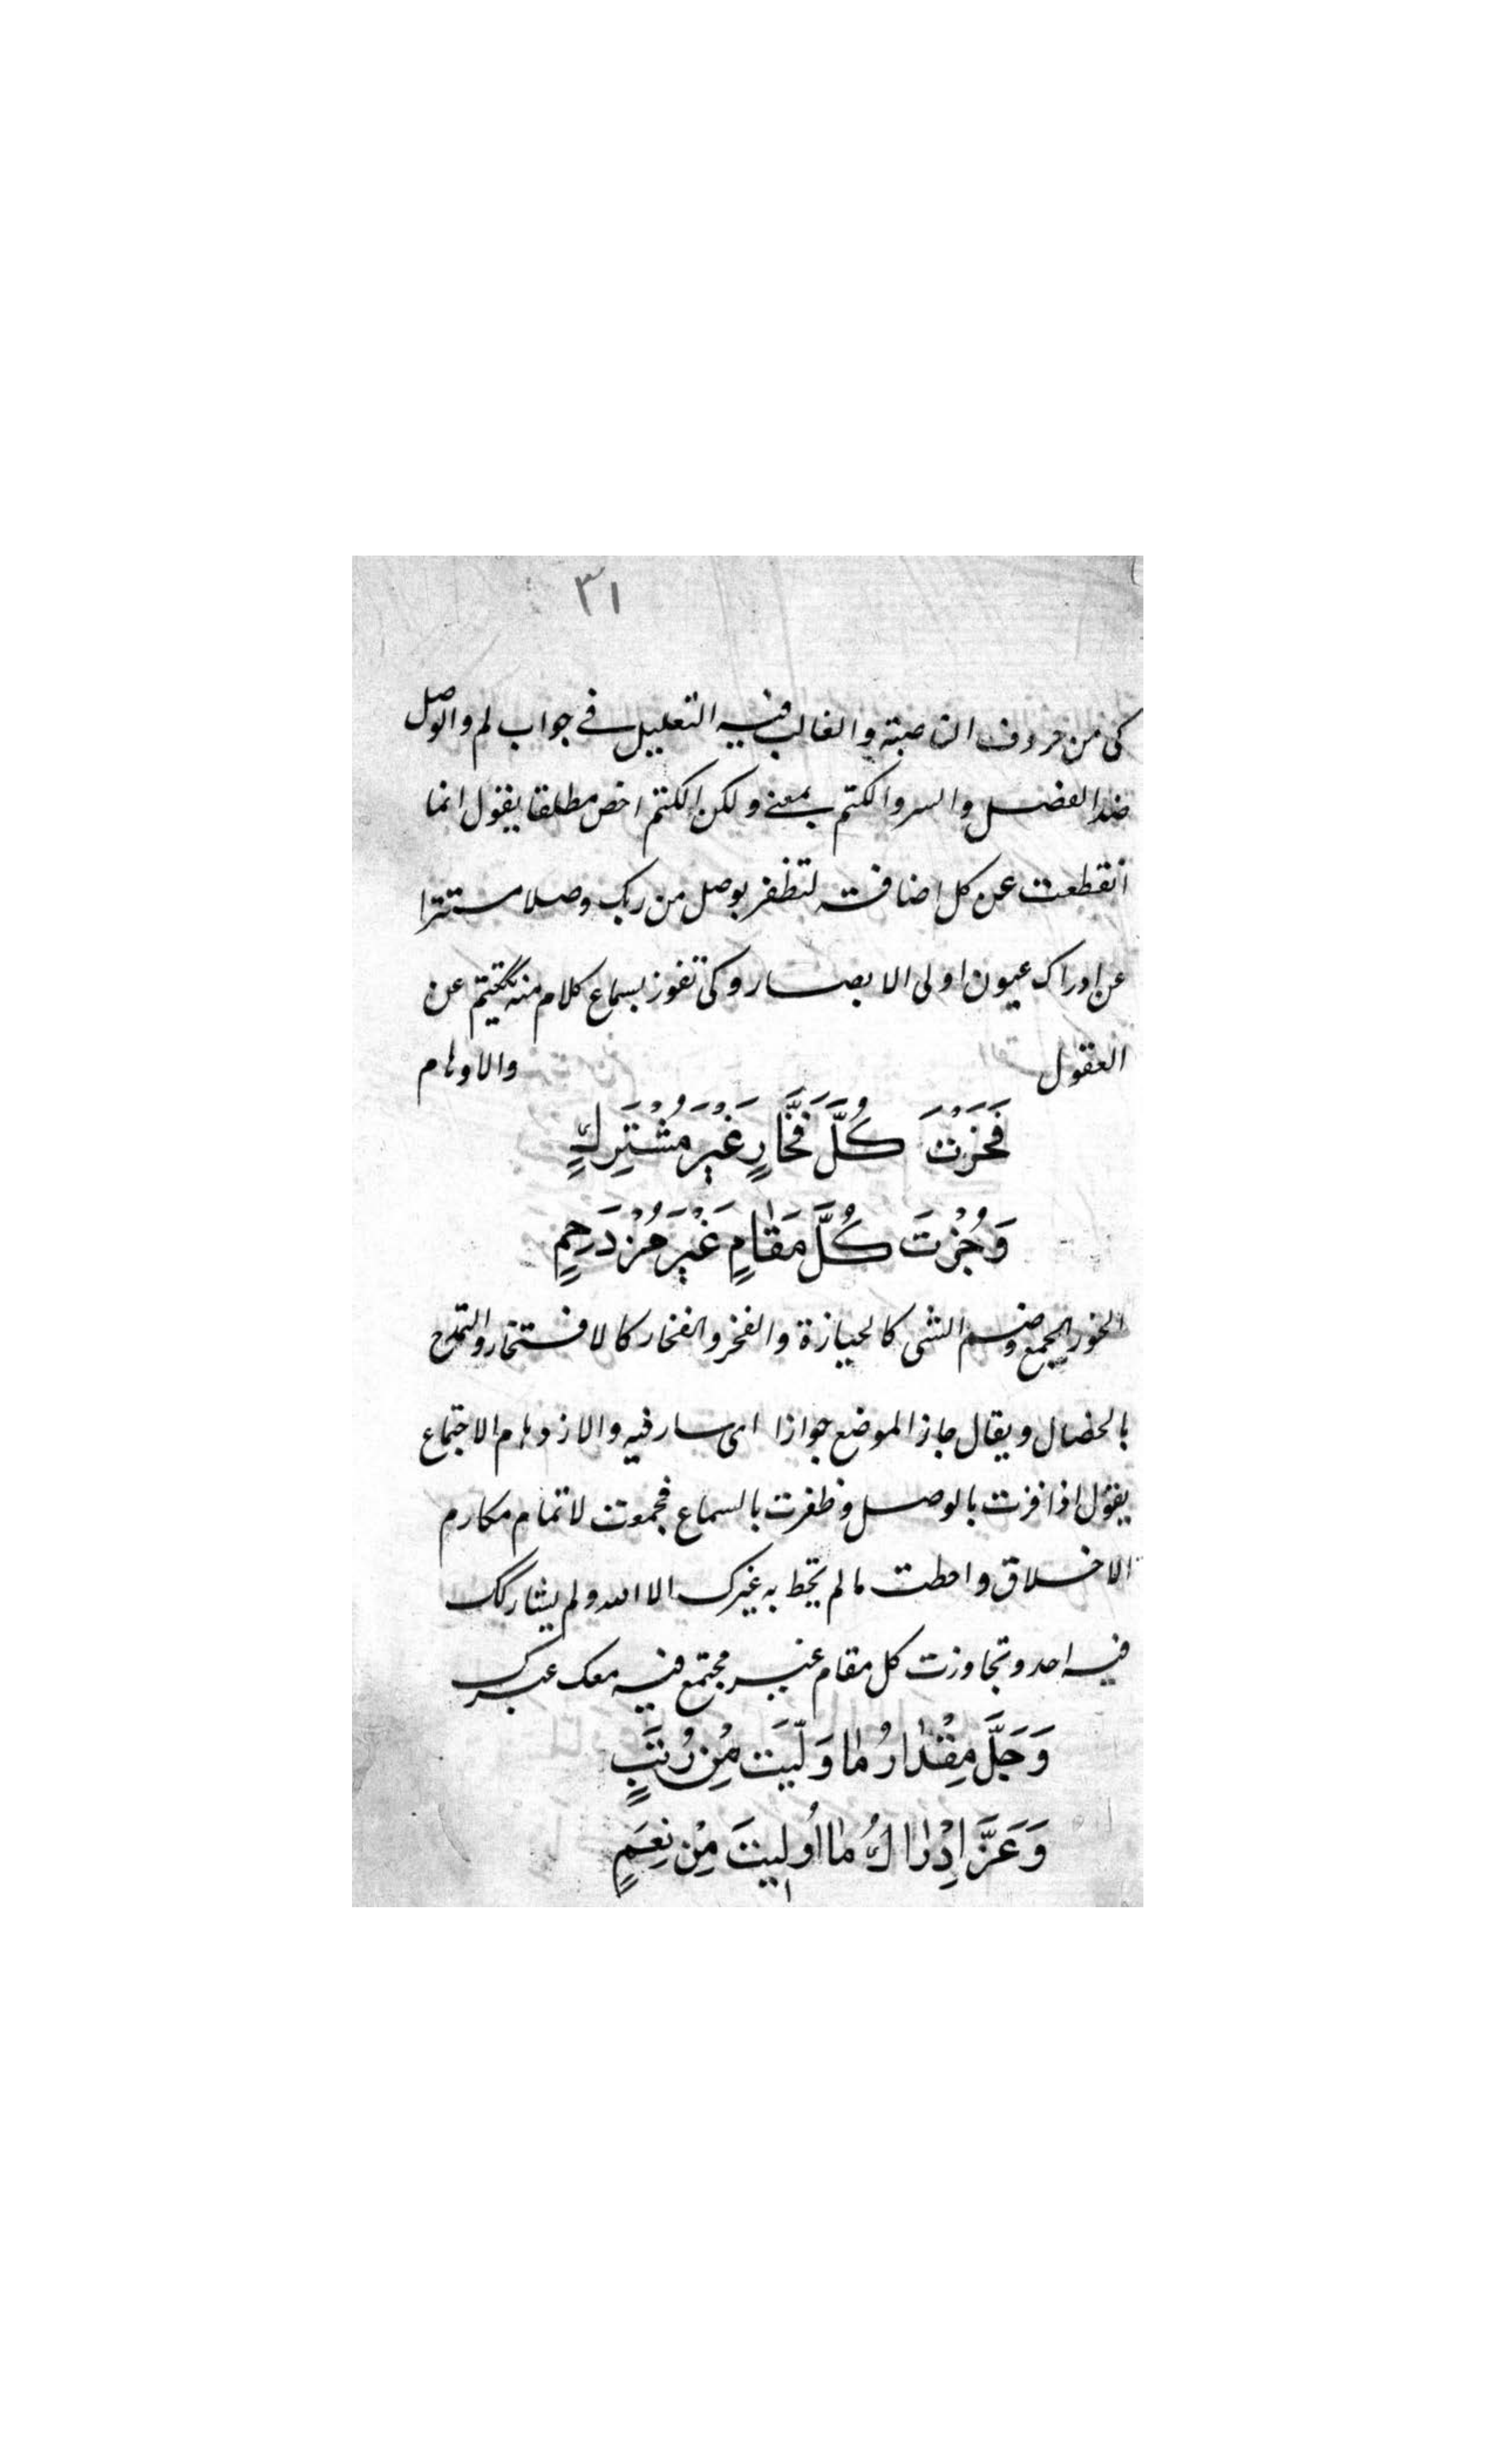 ٣١
كى من حروف الناصبة والغالب فيه التعليل فے جواب لم والوصل
ضد الفصل والسر والكتم بمعنے ولكن الكتم اخص مطلقا يقول انما
انقطعت عن كل اضافة لتظفر بوصل من ربك وصلا مستترا
عن ادراك عيون اولى الابصار وكى تفوز بسماع كلام منه مكتتم عن
العقول والاوهام
فَحَزْتَ كُلَّ فَخَّارٍ غَيْرَ مُشْتَرِكٍ
وَجُزْتَ كُلَّ مَقَامٍ غَيْرَ مُزْدَحِمٍ
الحوز الجمع وضم الشى كالحيازة والفخر والفخار كالافتخار والتمدح
بالخصال ويقال جاز الموضع جوازا اى سار فيه والازدهام الاجتماع
يقول اذا فزت بالوصل وظفرت بالسماع فجمعت لاتمام مكارم
الاخلاق واحطت ما لم يحط به غيرك الا الله ولم يشاركك
فيه احد وتجاوزت كل مقام غير مجتمع فيه معك غيرك
وَجَلَّ مِقْدَارُ مَا وَلّيتَ مِنْ رُتَبٍ
وَعَزَّ اِدْرَاكُ مَا اُوليتَ مِنْ نِعَمٍ